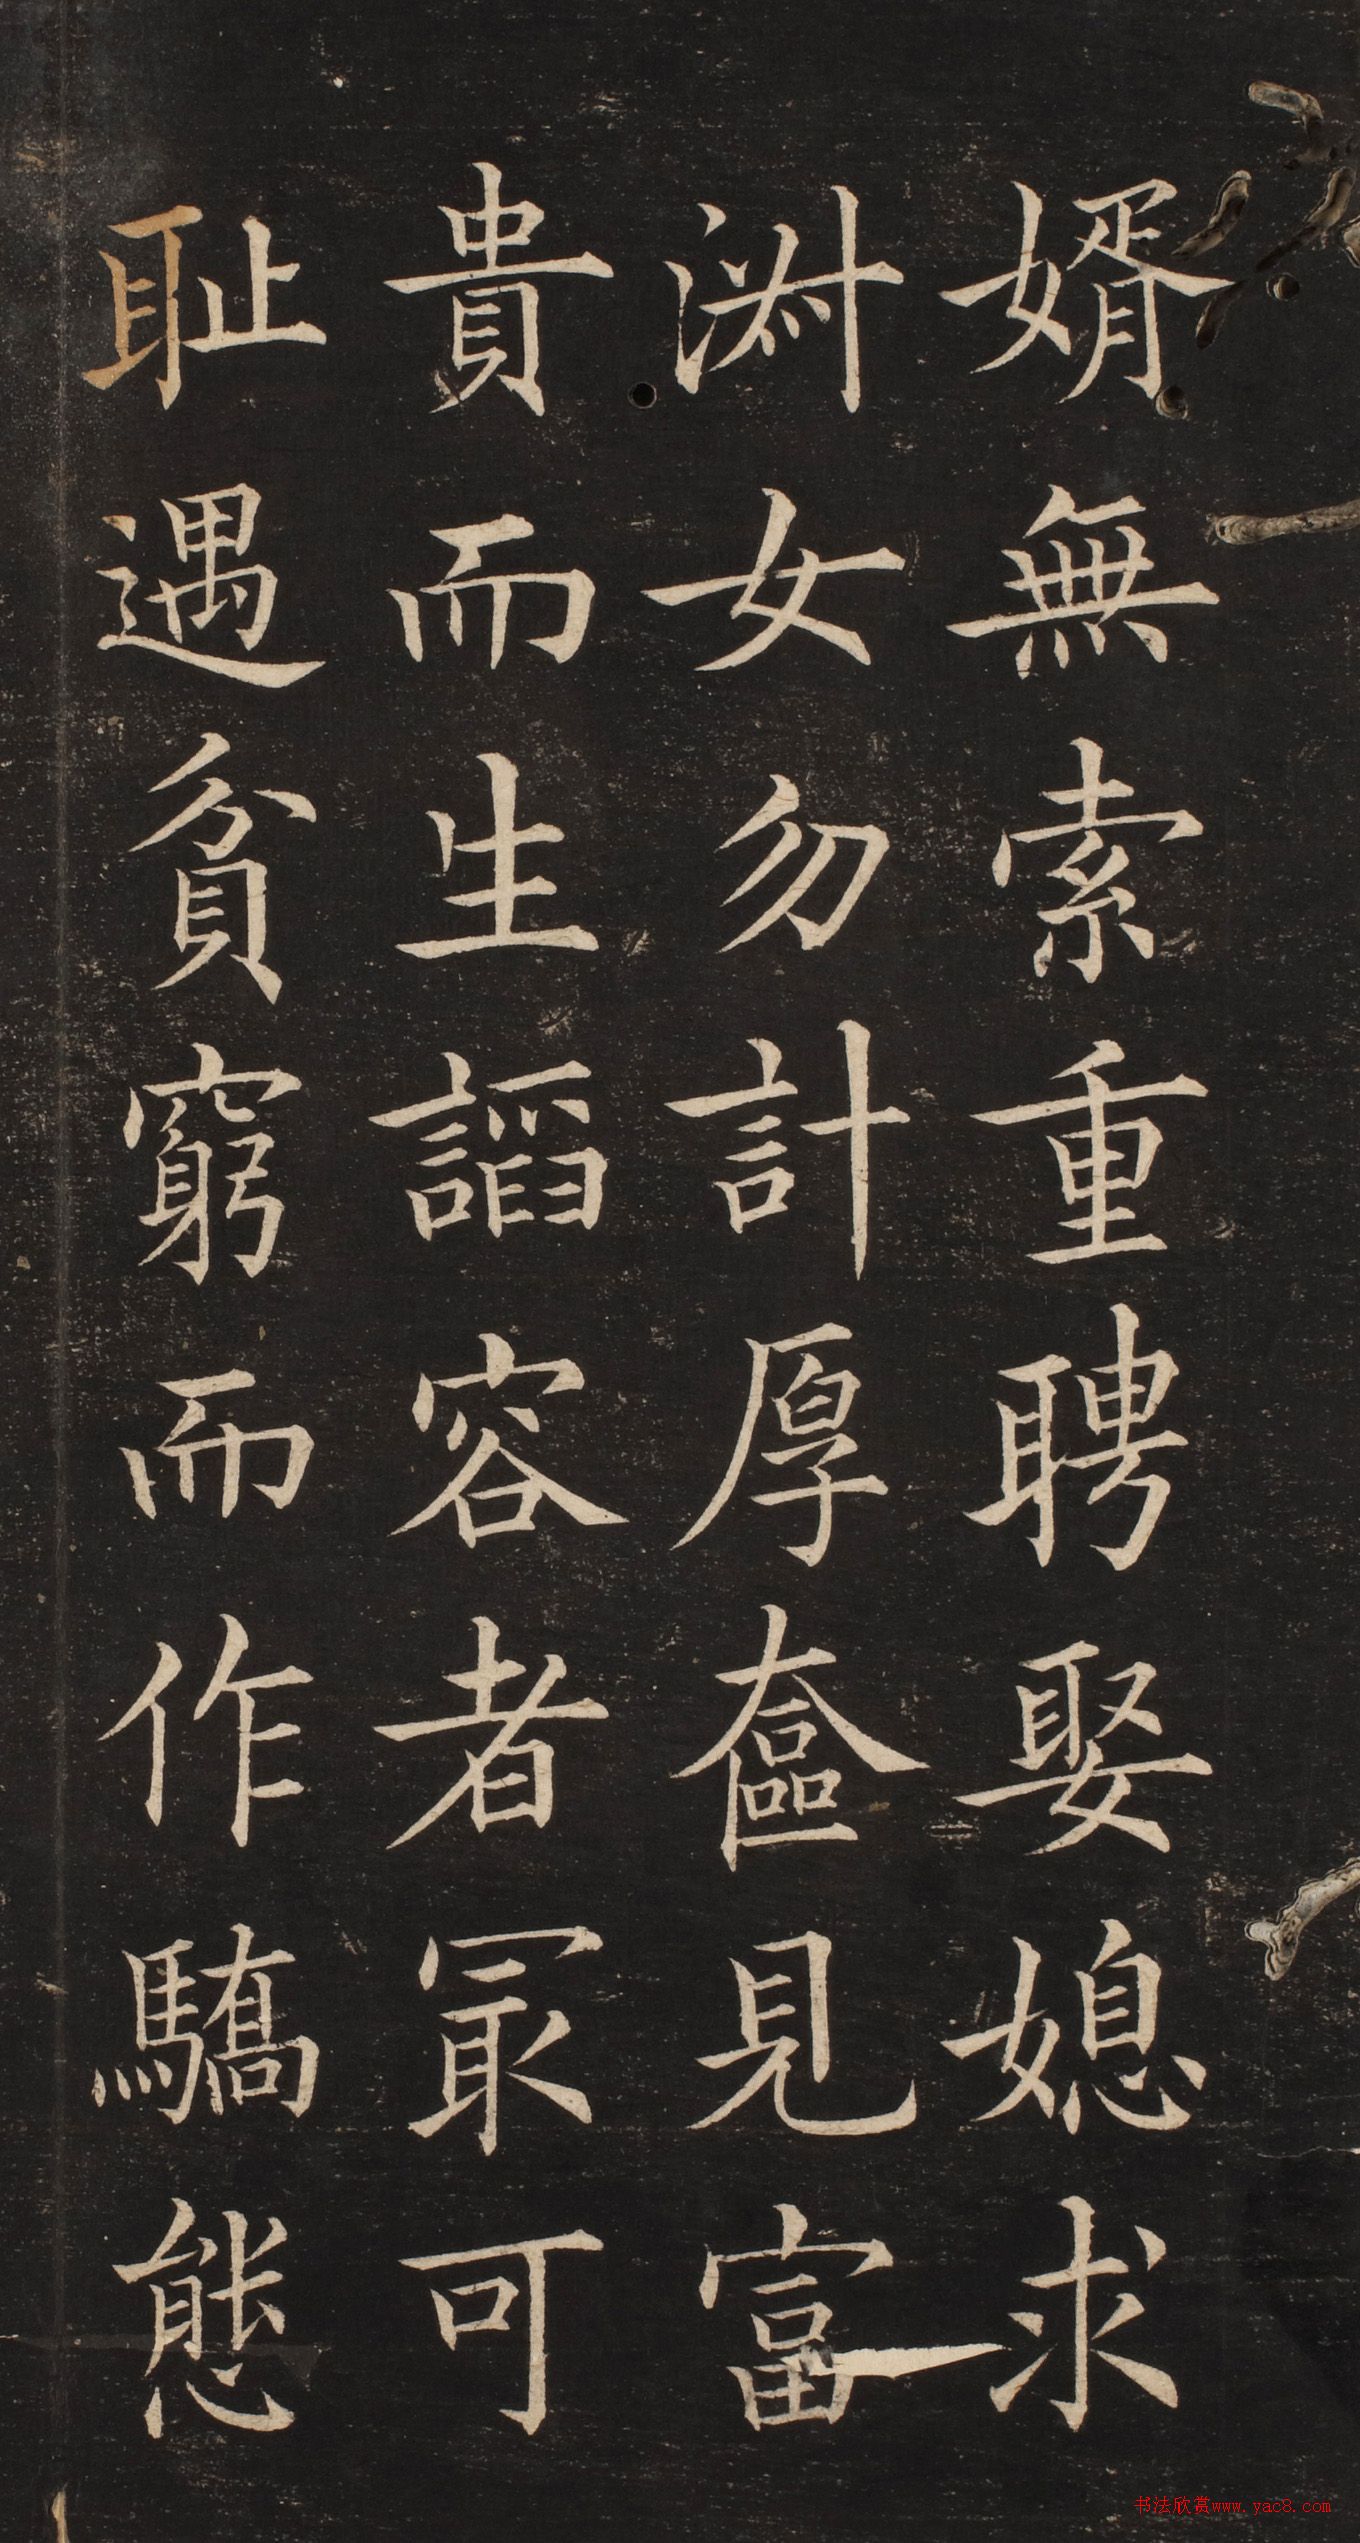 婿無索重聘娶媳求
淑女勿計厚奩見富
貴而生謟容者冣可
耻遇貧窮而作驕態
书法欣赏www.yac8.com